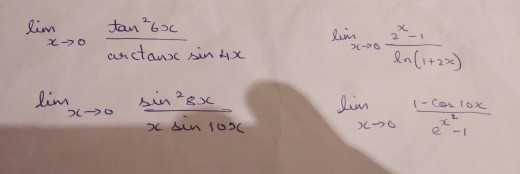 lim x→0 tan²6x / arctanx sin 4x
lim x→0 2ˣ-1 / ln(1+2x)
lim x→0 sin²8x / x sin 10x
lim x→0 1-cos 10x / e^x²-1